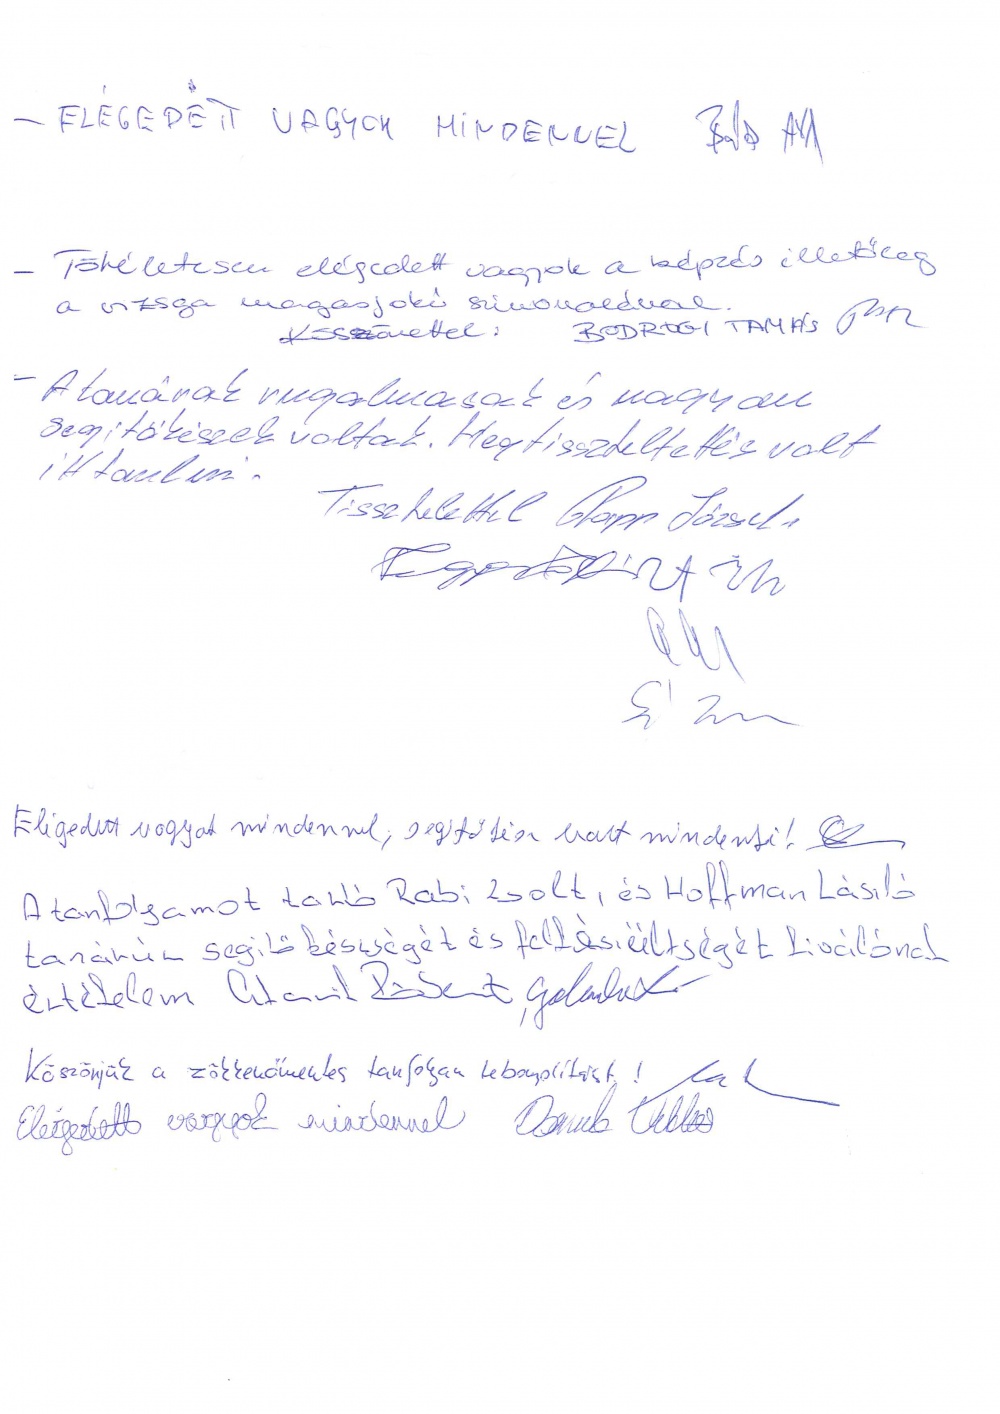 - ELÉGEDETT VAGYOK MINDENNEL
- Tökéletesen elégedett vagyok a képzés illetőleg
a vizsga magasfokú színvonalával.
Köszönettel: BODROGI TAMÁS
- A tanárok rugalmasak és nagyon
segítőkészek voltak. Megtiszteltetés volt
itt tanulni.
Tisztelettel Papp József
Elégedett vagyok mindennel, segítőkész volt mindenki!
A tanfolyamot tartó Rabi Zsolt, és Hoffman László
tanárúr segítőkészségét és felkészültségét kiválónak
értékelem Róbert
Köszönjük a zökkenőmentes tanfolyam lebonyolítást!
Elégedett vagyok mindennel